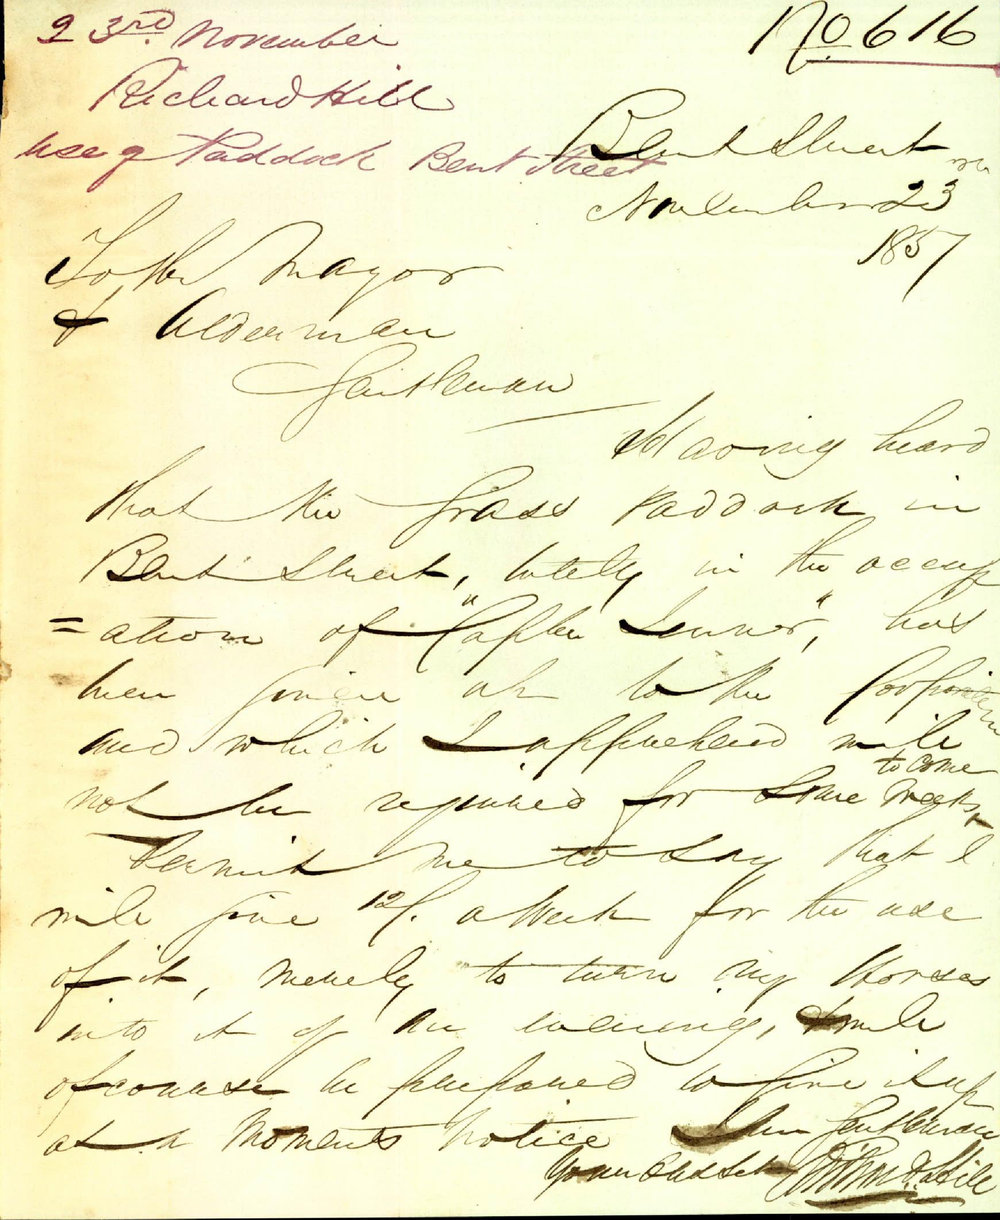 No 616
23rd November
Richard Hill
use of Paddock Bent Street
Bent Street
November 23
1857
To the Mayor
& Alderman
Gentleman
Having heard
that the Grass Paddock in
Bent Street, lately in the occup
=ation of "Captn Jenner", has
been given up to the Corporation
and which I apprehend will
not be required for some weeks to come
Permit me to say that I
will give 12/. a Week for the use
of it, merely to turn my Horses
into it of an evening, & will
of course be prepared to give it up
at a moments notice I am Gentleman
your Obdt Sevt Richd Hill